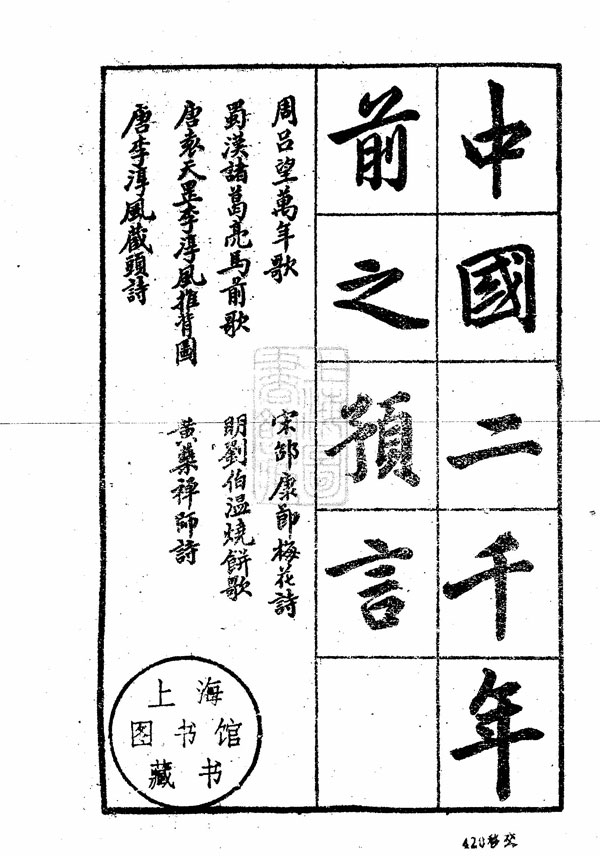 中國二千年
前之預言
周呂望萬年歌
蜀漢諸葛亮馬前歌
唐袁天罡李淳風推背圖
唐李淳風藏頭詩
宋邵康節梅花詩
明劉伯溫燒餅歌
黃蘗禪師詩
上海
图书馆
藏书
420移交